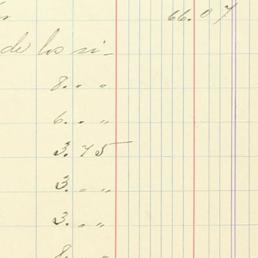 66.07
de los si-
8. " "
6. " "
3.75
3. " "
3. " "
8. "